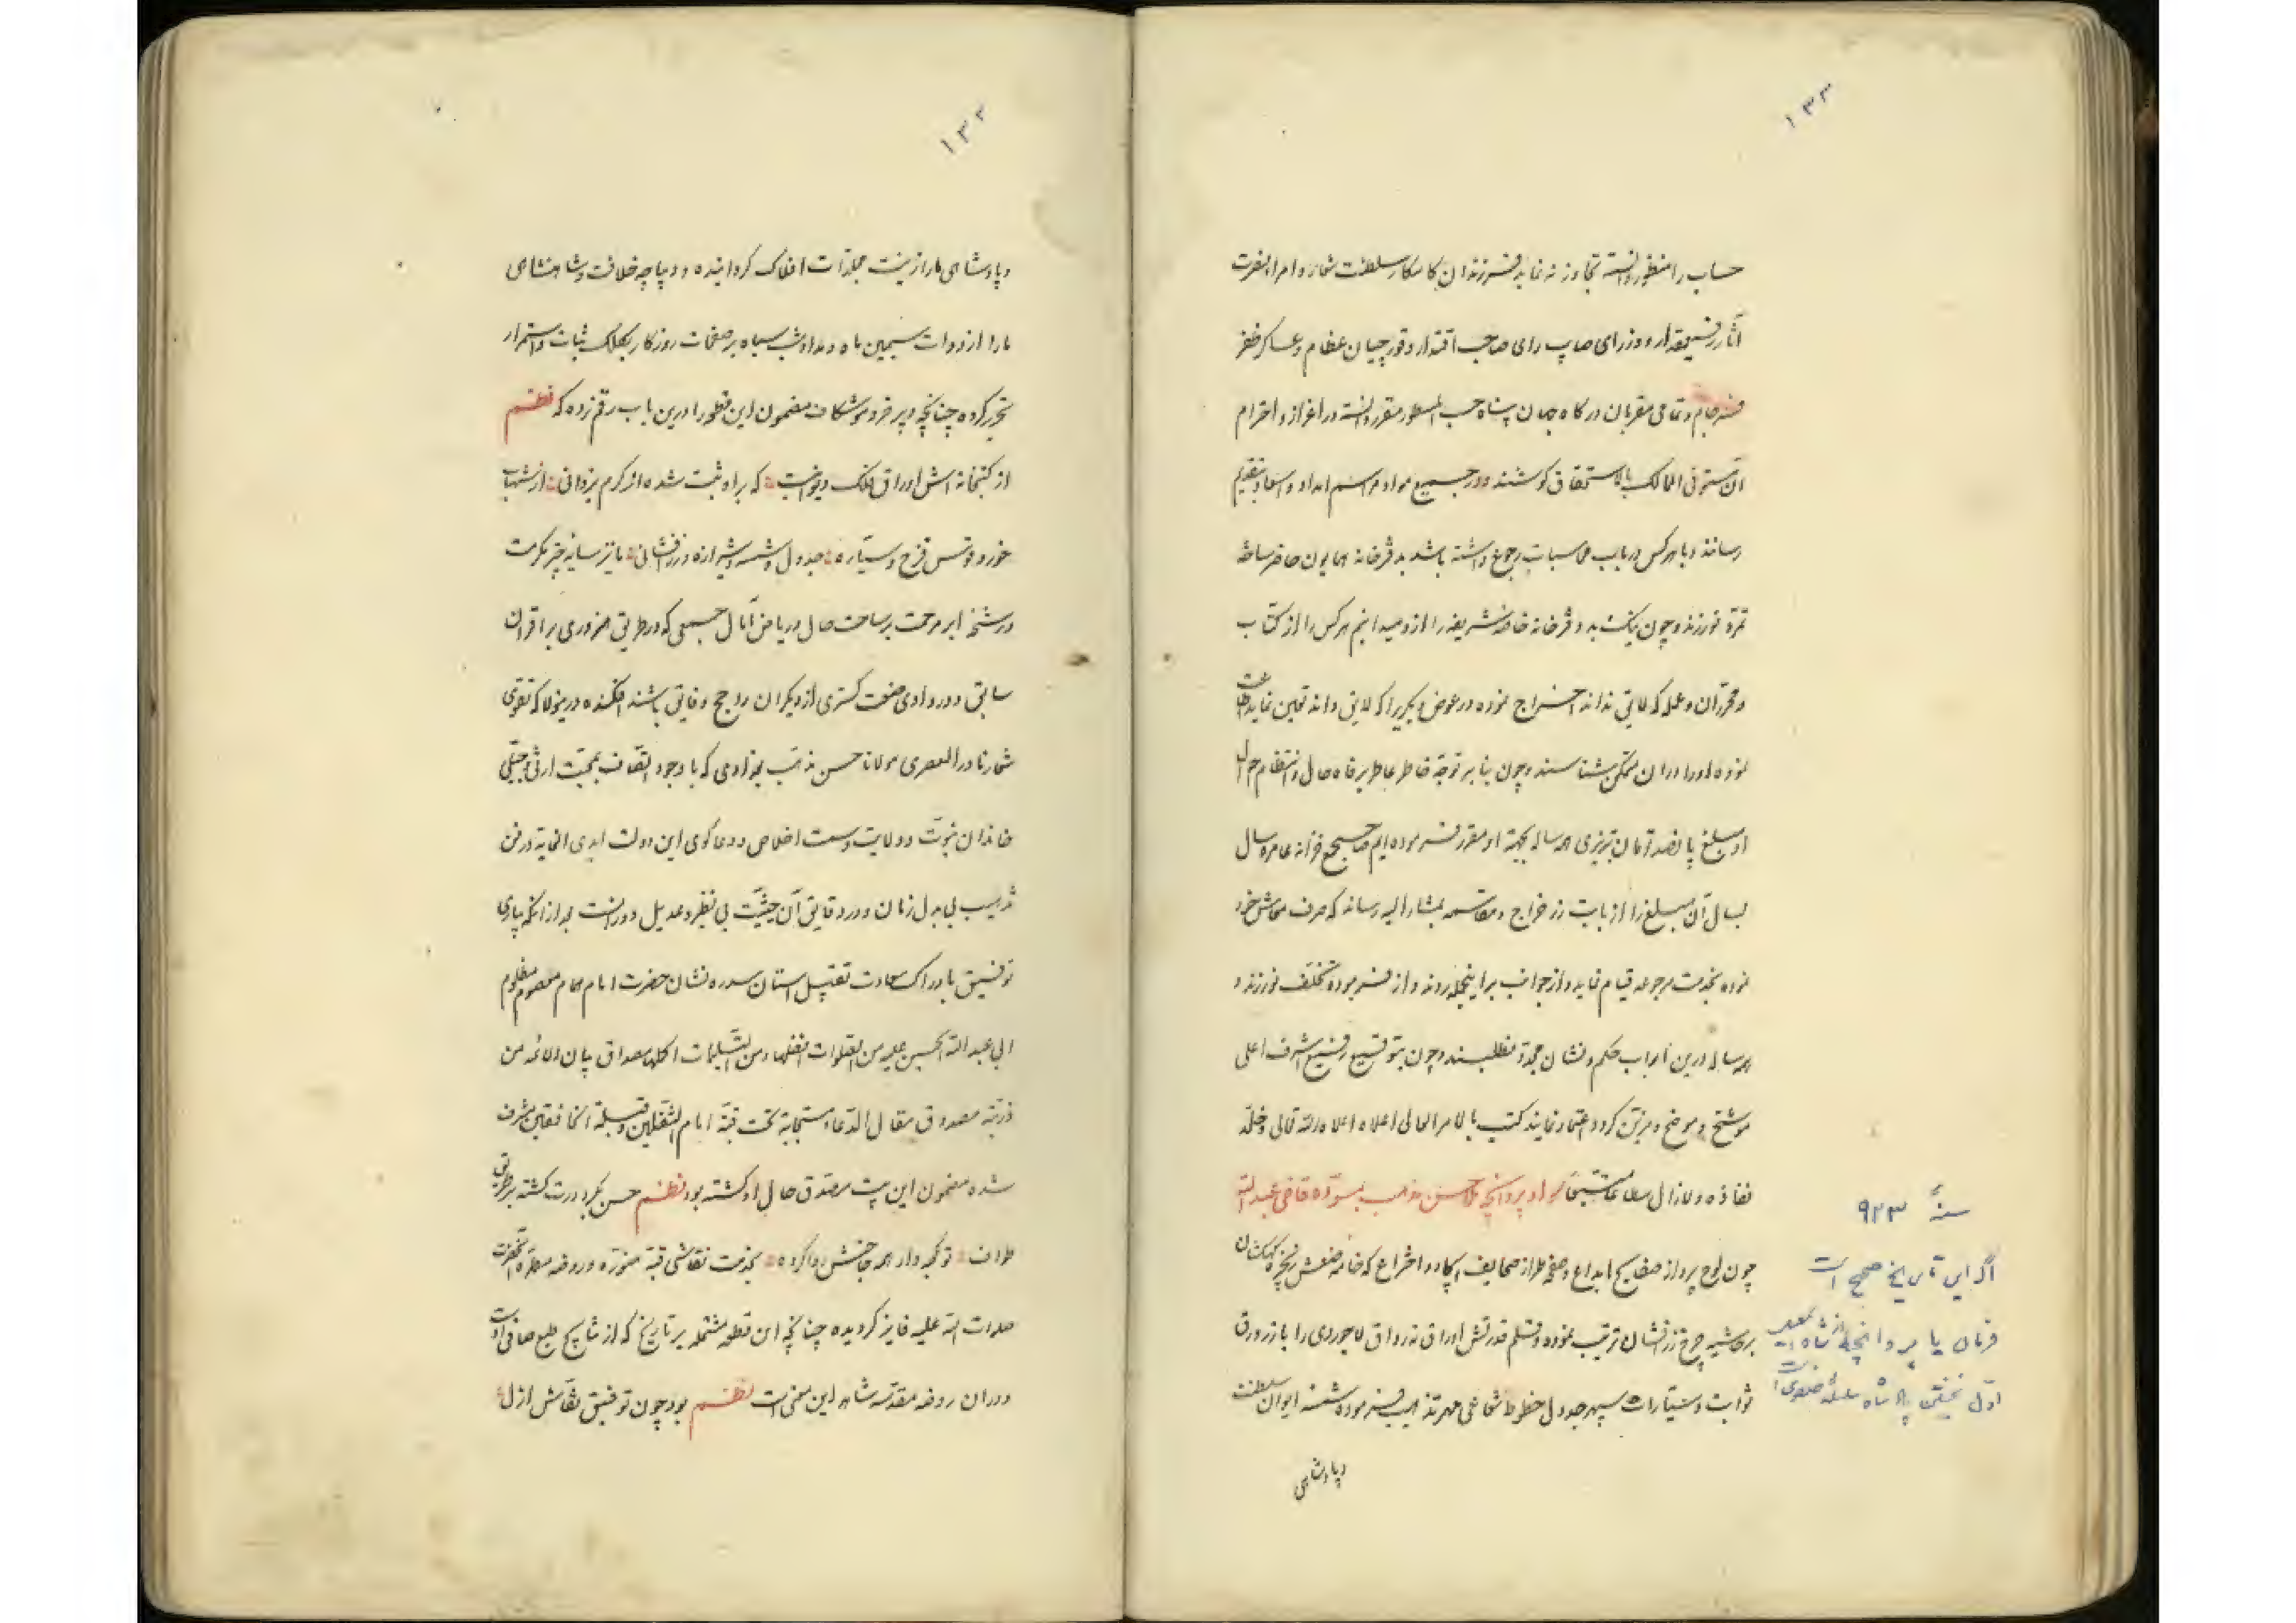 ۱۳۳
حساب را منظور دانسته تجاوز ننماید فرزندان کامکار سلطنت شعار و امراء نصرت
آثار رفیعمقدار و وزرای صایب رای صاحب اقتدار و قورچیان عظام و عساکر ظفر
فرجام و تمامی مقربان درگاه جهان پناه حسب المسطور مقرر دانسته در اعزاز و احترام
آن مستوفی الممالک بالاستحقاق کوشند و در جمیع مواد مراسم امداد و اسعاد بتقدیم
رسانند و با هر کس در باب محاسبات رجوع داشته باشد بدفترخانه همایون حاضر ساخته
تمرد نورزند و چون نیک و بد دفترخانه خاصه شریفه را ازو میدانیم هر کس را از کتاب
و محرران و عمله که لایق نداند اخراج نموده در عوض دیگریرا که لایق داند تعیین نماید
نموده او را در آن متمکن شناسند و چون بنابر توجه خاطر عاطر برفاه حال و انتظام احوال
او مبلغ پانصد تومان تبریزی همه ساله بجهة او مقرر فرموده ایم صاحبجمع خزانه عامره سال
بسال آن مبلغ را از بابت زر خراج و مقاسمه بمشارالیه رساند که صرف معاش خود
نموده بخدمت مرجوعه قیام نماید و از جوانب بر اینجمله روند و از فرموده تخلف نورزند و
همه ساله درین ابواب حکم و نشان مجدد نطلبند و چون بتوقیع رفیع اشرف اعلی
موشح و موضح و مزین گردد اعتماد نمایند کتب بالامر العالی اعلاه الله تعالی و خلد
نفاذه و لازال مطاعا متبعا سواد پروانچه ملا حسن مذهب بمسوده قاضی عبدالله
چون لوح پرداز صفایح ابداع و صفحه طراز صحایف ایجاد و اختراع که خامه صنعش زنجیره کهکشان
بر حاشیه چرخ زرافشان ترتیب نموده و قلم قدرتش اوراق نه رواق لاجوردی را با زر ورق
ثوابت و سیارات سپهر جدول خطوط شعاعی مهر تذهیب فرموده شمسه ایوان سلطنت
وپادشاهی
سنهٔ ۹۲۳
اگر این تاریخ صحیح است
فرمان یا پروانچه از شاه اسمعیل
اوّل نخستین پادشاه سلسلهٔ صفوی است
۱۳۲
و پادشاهی ما را زینت مجلدات افلاک گردانیده و دیباچه خلافت و شاهنشاهی
ما را از دوات سیمین ماه و مداد شب سیاه بر صفحات روزگار بکلک ثبات و استمرار
تحریر کرده چنانچه دبیر خرد موشکاف مضمون این قطعه را درین باب رقم زده که نظم
از کتبخانه اش اوراق فلک دیوانیست که برو ثبت شده از کرم یزدانی از شهاب
خور و قوس قزح و سیاره جدول و شمسه و شیرازه و زرافشانی مانیز سایه چتر مکرمت
و رشحهٔ ابر مرحمت بر ساحت حال و ریاض آمال جمعی که در طریق هنروری بر اقران
سابق و در وادی صنعت گستری از دیگران راجح و فایق باشند افکنده درینولا که تقوی
شعار نادر العصری مولانا حسن مذهب بغدادی که با وجود اتصاف بمحبت ارثی و جبلی
خاندان نبوت و ولایت و سمت اخلاص و دعاگوی این دولت ابدی النهایة در فن
تذهیب بی بدل زمان و در دقایق آن حیثیت بی نظیر و عدیل دورانست بعد از آنکه بیاری
توفیق بادراک سعادت تقبیل آستان سدره نشان حضرت امام همام معصوم مظلوم
ابی عبدالله الحسین علیه من الصلوات افضلها و من التسلیمات اکملها مصداق بیان الائمه من
ذریته مصدوق مقال الدعاء مستجابة تحت قبته امام الثقلین و قبلة الخافقین مشرف
شده مضمون این بیت مصدق حال او گشته بود نظم حسن گرد درت گشته بر طریق
طواف تو کعبه وار همه حاجتش روا کرده بخدمت نقاشی قبه منوره و روضه مطهره آنحضرت
صلوات الله علیه فایز گردیده چنانچه این قطعه مشتمله بر تاریخ که از نتایج طبع صافی اوست
در آن روضه مقدسه شاهد این معنی است نظم بود چون توفیق نقاش ازل